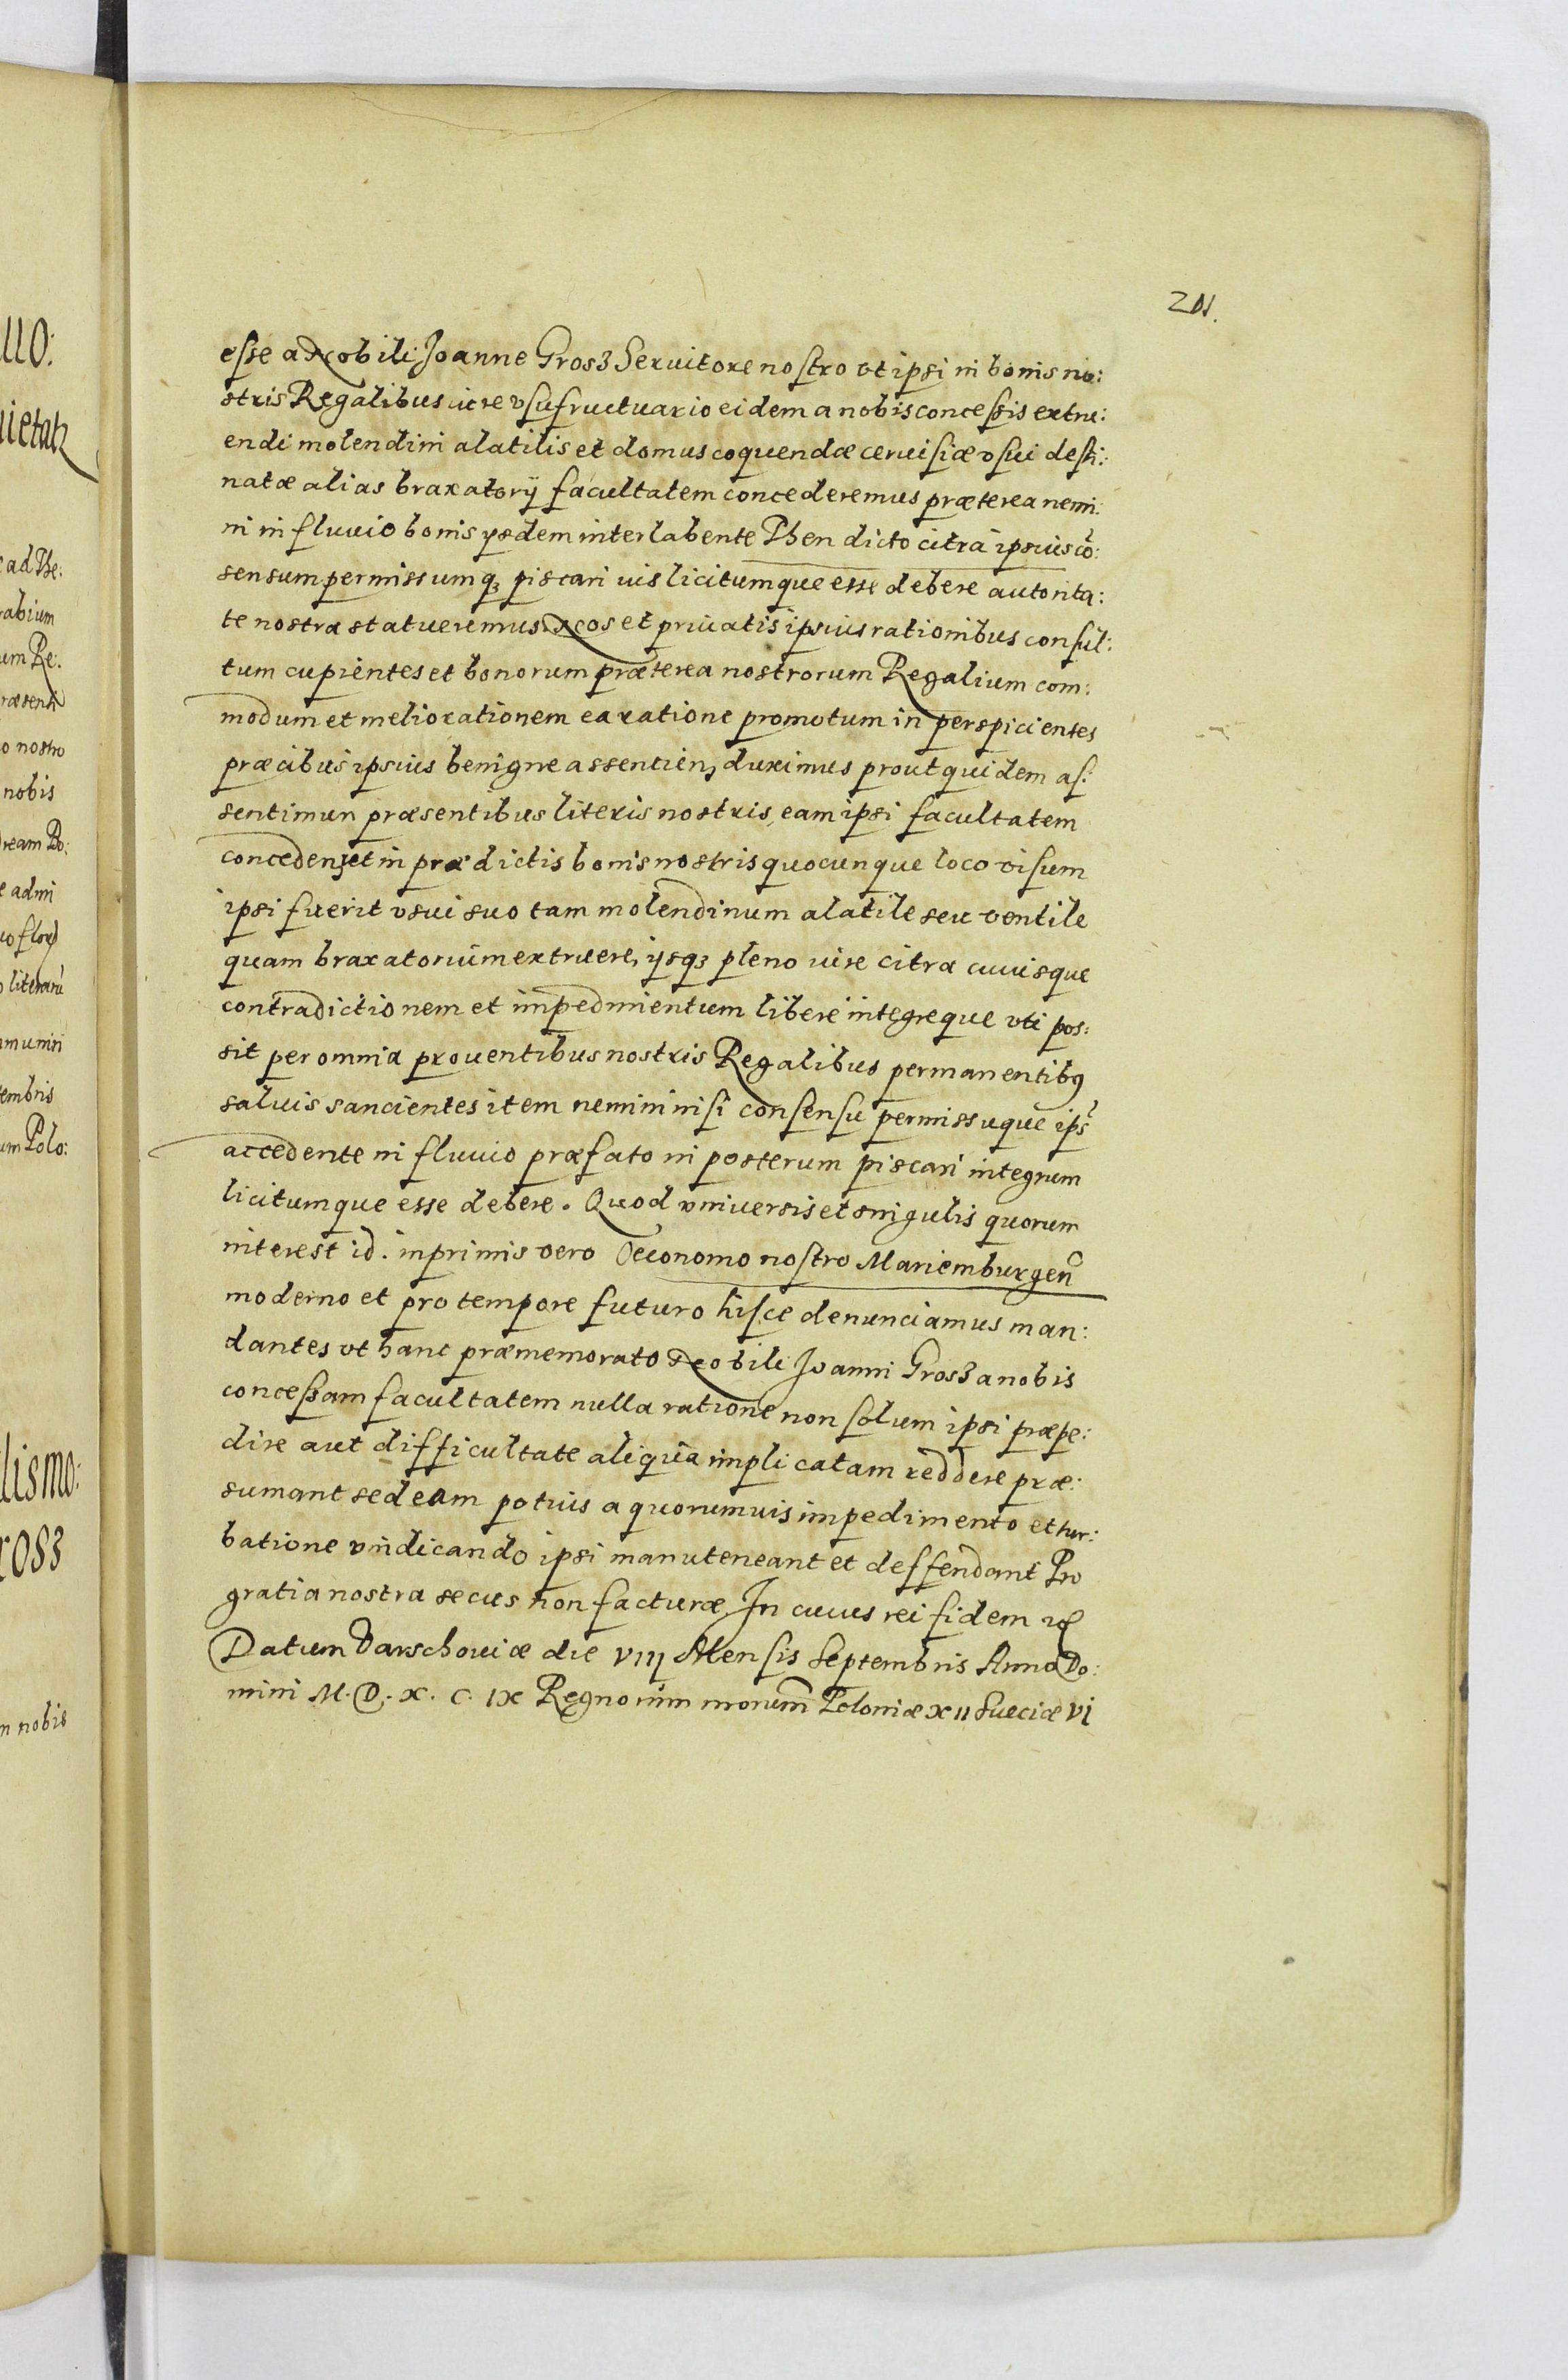 201.
esse a Nobili Joanne Grosz Seruitore nostro vt ipsi in bonis no:
stris Regalibus iure vsufructuario eidem a nobis concessis extru:
endi molendini alatilis et domus coquendæ ceruisiæ vsui desti:
natæ alias braxatorij facultatem concederemus præterea nemi:
ni in fluuio bonis ysdem interlabente Then dicto citra ipsius cō:
sensum permissumq3 piscari uis licitumque esse debere autorita:
te nostra statueremus. Nos et priuatis ipsius rationibus consul:
tum cupientes et bonorum præterea nostrorum Regalium com:
modum et meliorationem ea ratione promotum in perspicientes
præcibus ipsius benigne assentien3 duximus prout quidem as:
sentimur præsentibus literis nostris, eam ipsi facultatem
conceden3 et in prædictis bonis nostris quocunque loco visum
ipsi fuerit vsui suo tam molendinum alatile seu ventile
quam braxatorium extruere, ysq3 pleno iure citra cuuisque
contradictionem et impedimentum libere integreque vti pos:
sit per omnia prouentibus nostris Regalibus permanentib9
saluis sancientes item nemini nisi consensu permissuque ips̄
accedente in fluuio præfato in posterum piscari integrum
licitumque esse debere. Quod vniuersis et singulis quorum
interest id. inprimis vero Oeconomo nostro Mariemburgen̄
moderno et pro tempore futuro hisce denunciamus man:
dantes vt hanc præmemorato Nobili Joanni Grosz a nobis
concessam facultatem nulla ratione non solum ipsi præpe:
dire aut difficultate aliqua implicatam reddere præ:
sumant sed eam potius a quorumuis impedimento et tur:
batione vindicando ipsi manuteneant et deffendant Pro
gratia nostra secus non facturæ. In cuuus rei fidem
Datum Varschouiæ die VIII Mensis Septembris Anno Do:
mini M. D. X. C. IX Regnorum nrorum̄ Poloniæ XII Sueciæ VI